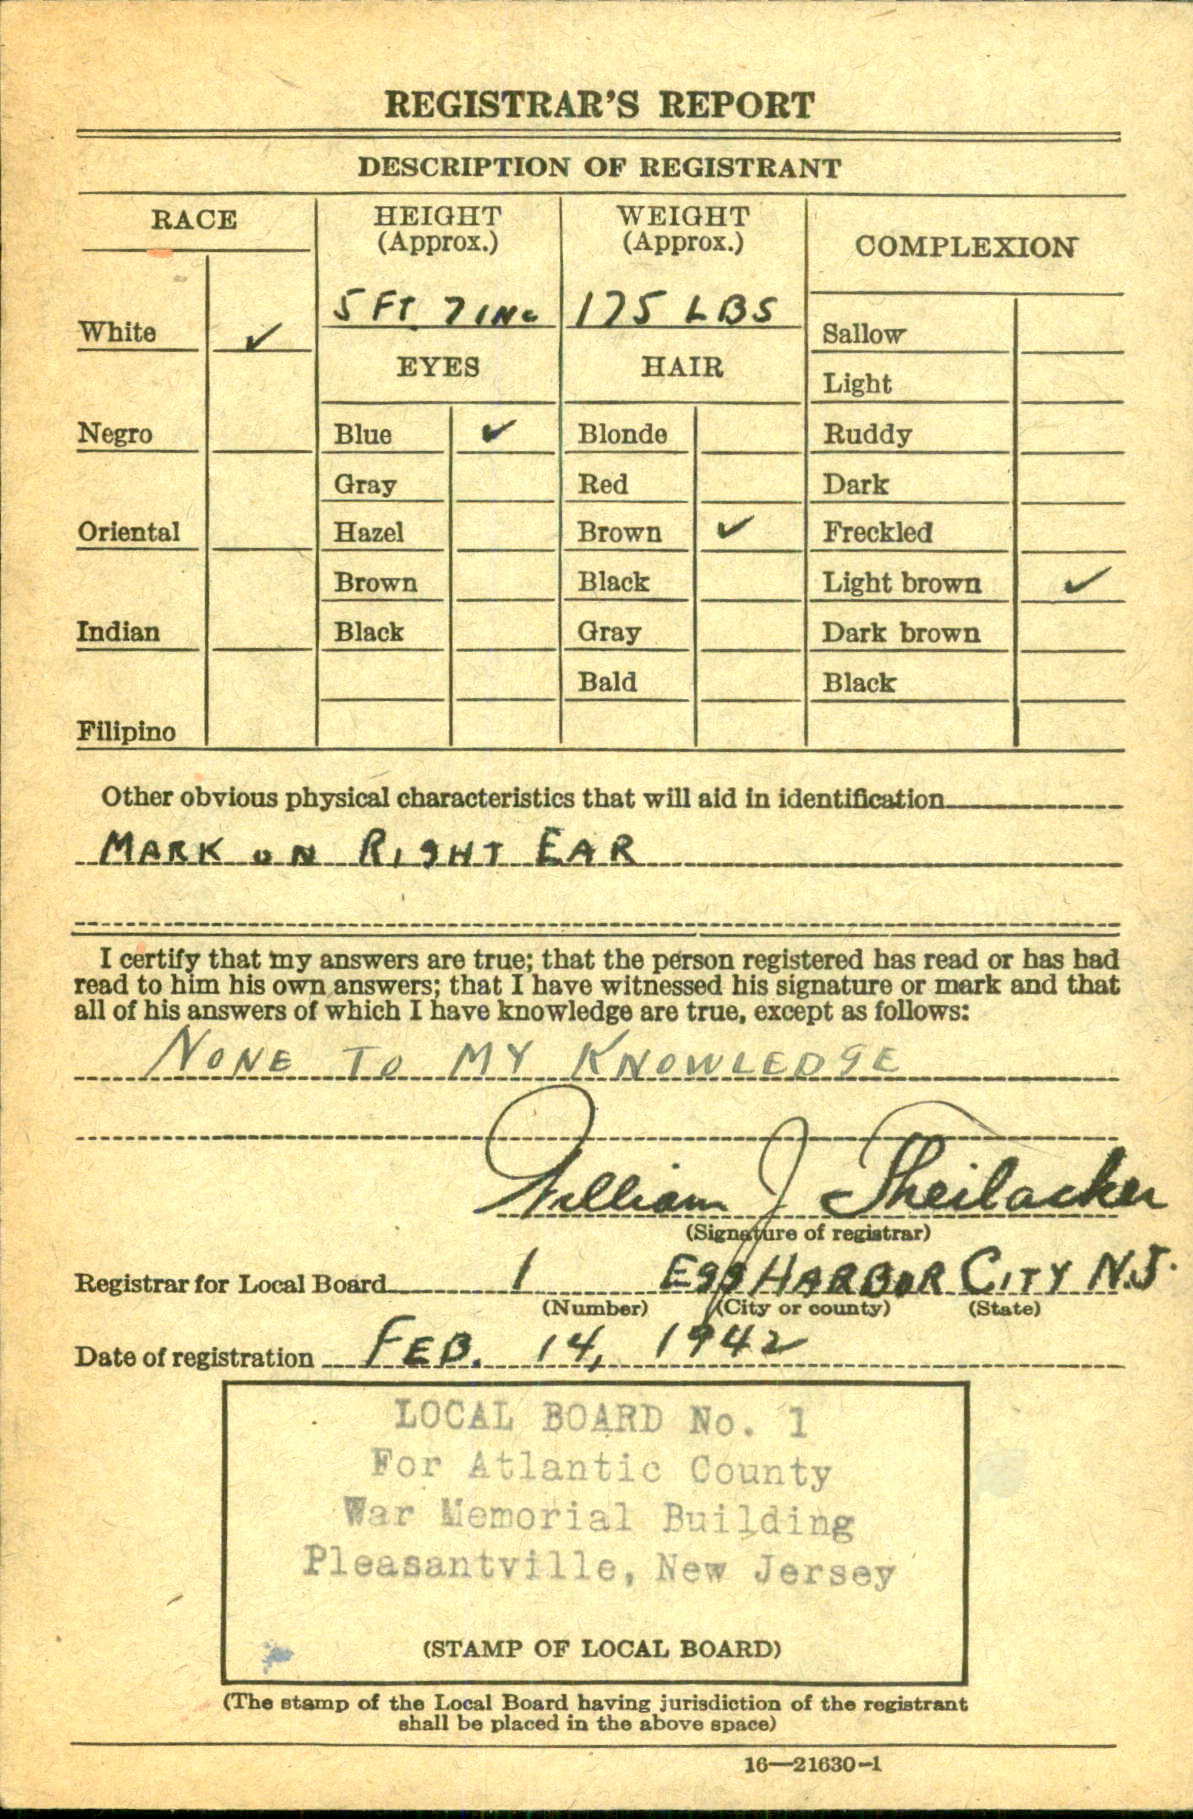 REGISTRAR'S REPORT
DESCRIPTION OF REGISTRANT
RACE
HEIGHT
(Approx.)
WEIGHT
(Approx.)
COMPLEXION
5 FT. 7 INC
175 LBS
White ✓
EYES
HAIR
Sallow
Light
Negro
Blue ✓
Blonde
Ruddy
Gray
Red
Dark
Oriental
Hazel
Brown ✓
Freckled
Brown
Black
Light brown ✓
Indian
Black
Gray
Dark brown
Bald
Black
Filipino
Other obvious physical characteristics that will aid in identification
MARK ON RIGHT EAR
I certify that my answers are true; that the person registered has read or has had
read to him his own answers; that I have witnessed his signature or mark and that
all of his answers of which I have knowledge are true, except as follows:
NONE TO MY KNOWLEDGE
William J Theilacker
(Signature of registrar)
Registrar for Local Board 1 EGG HARBOR CITY N.J.
(Number) (City or county) (State)
Date of registration FEB. 14, 1942
LOCAL BOARD No. 1
For Atlantic County
War Memorial Building
Pleasantville, New Jersey
(STAMP OF LOCAL BOARD)
(The stamp of the Local Board having jurisdiction of the registrant
shall be placed in the above space)
16—21630-1